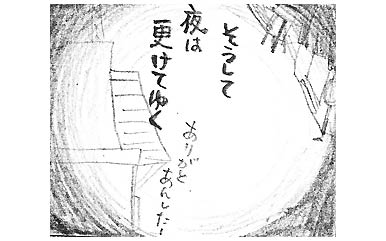 そうして
夜は
更けてゆく
ありがと
あんした!